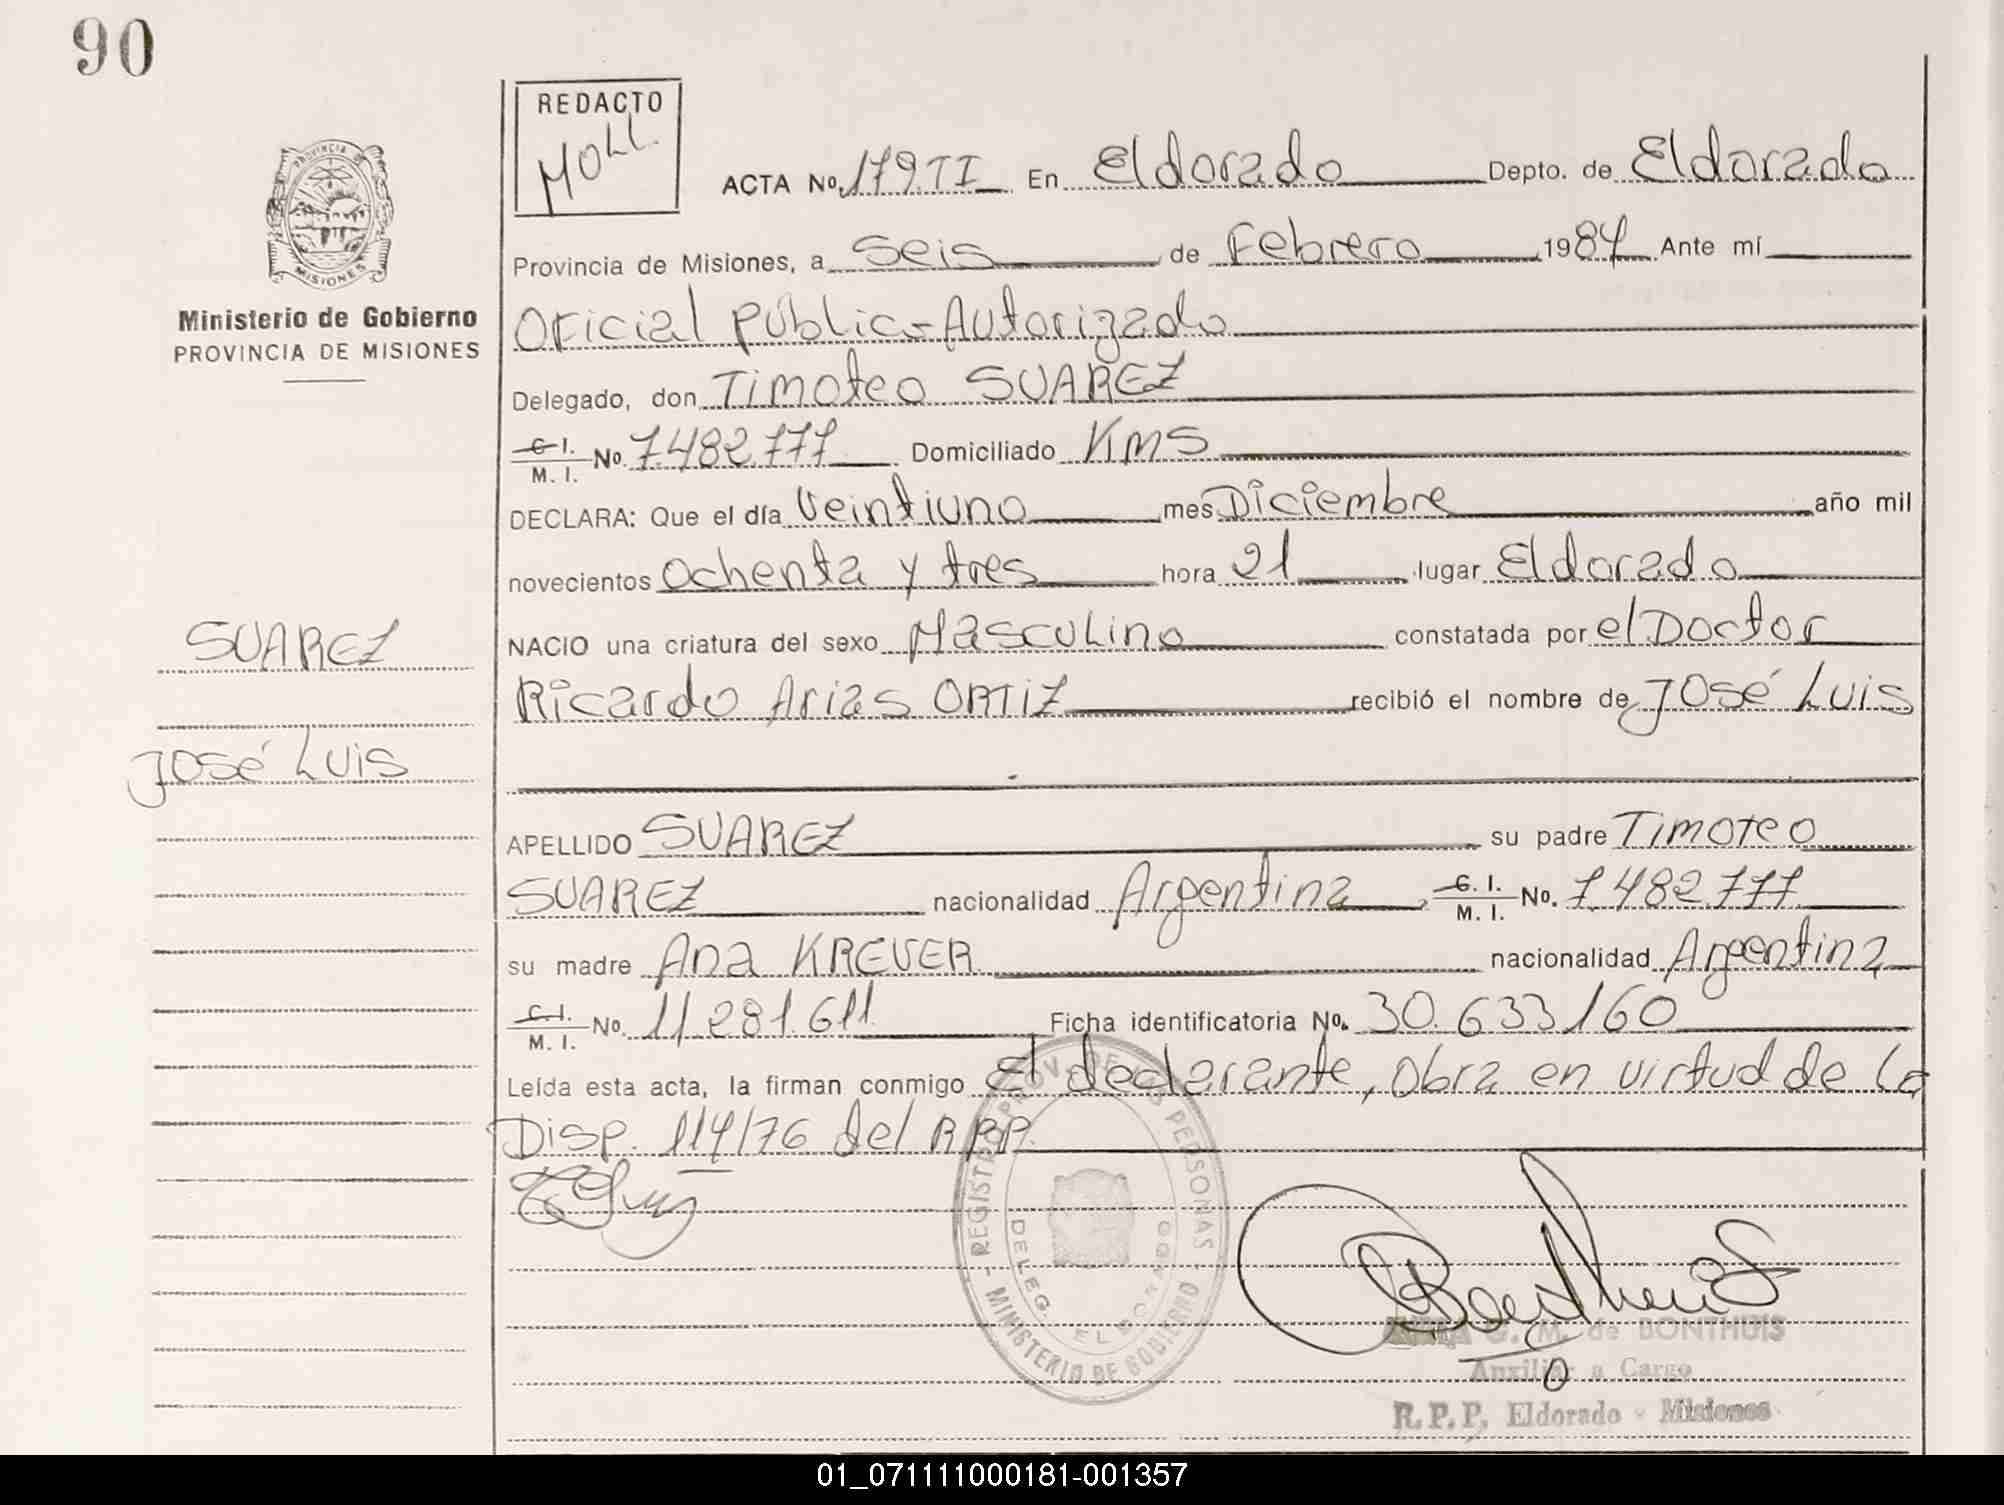 90
REDACTO
MOLL.
ACTA No. 179 TI En Eldorado Depto. de Eldorado
PROVINCIA DE
MISIONES
Provincia de Misiones, a Seis de Febrero 1984 Ante mí
Ministerio de Gobierno
PROVINCIA DE MISIONES
Oficial Público Autorizado
Delegado, don Timoteo SUAREZ
C. I.
M. I. No. 7.482.777 Domiciliado KM5
DECLARA: Que el día Veintiuno mes Diciembre año mil
novecientos Ochenta y tres hora 21 lugar Eldorado
SUAREZ
NACIO una criatura del sexo Masculino constatada por el Doctor
Ricardo Arias ORTIZ recibió el nombre de José Luis
José Luis
APELLIDO SUAREZ su padre Timoteo
SUAREZ nacionalidad Argentina, C. I.
M. I. No. 7.482.777
su madre Ana KREVER nacionalidad Argentina
C. I.
M. I. No. 11.281.611 Ficha identificatoria No. 30.633160
Leída esta acta, la firman conmigo El declarante, Obra en virtud de la
Disp. 114/76 del R.P.P.
REGISTRO PROV. DE LAS PERSONAS
DELEG. ELDORADO
MINISTERIO DE GOBIERNO
G. M. de BONTHUIS
Auxiliar a Cargo
R.P.P. Eldorado - Misiones
01_071111000181-001357